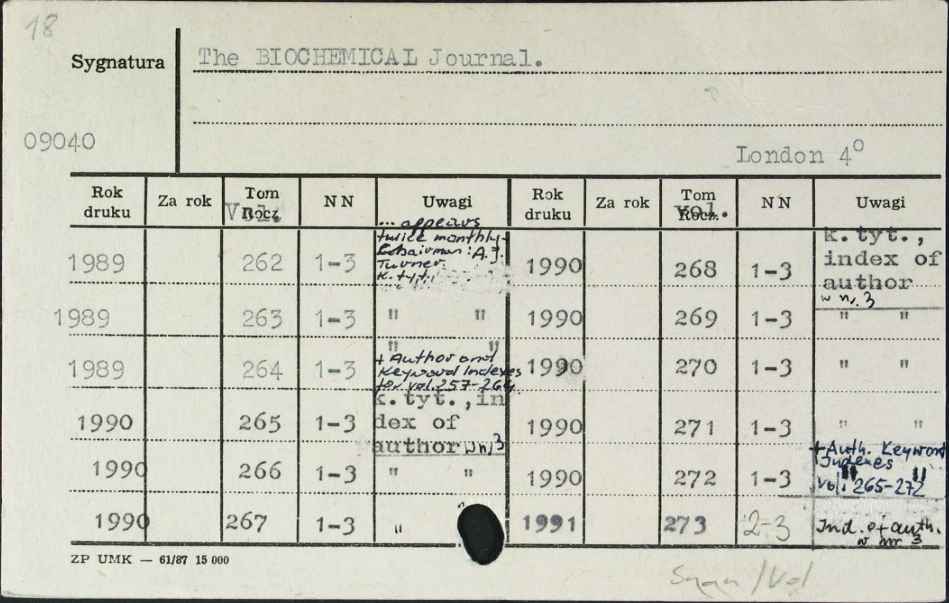 18
Sygnatura
The BIOCHEMICAL Journal.
09040
London 4°
Rok druku Za rok Tom Rocz. Vol. NN Uwagi Rok druku Za rok Tom Rocz. vol. NN Uwagi
1989 262 1-3 ... appears twice monthly- Chairman: A.J. Turner. k.tyt., 1990 268 1-3 k.tyt., index of author w nr. 3
1989 263 1-3 " " 1990 269 1-3 " "
1989 264 1-3 " " + Author and Keyword Indexes for vol. 257-264 1990 270 1-3 " "
1990 265 1-3 k.tyt.,in dex of author w nr 3 1990 271 1-3 " "
1990 266 1-3 " " 1990 272 1-3 " " + Auth. Keyword Indexes Vol. 265-272
1990 267 1-3 " " 1991 273 2-3 Ind. of auth. w nr 3
ZP UMK — 61/87 15 000
/Vol